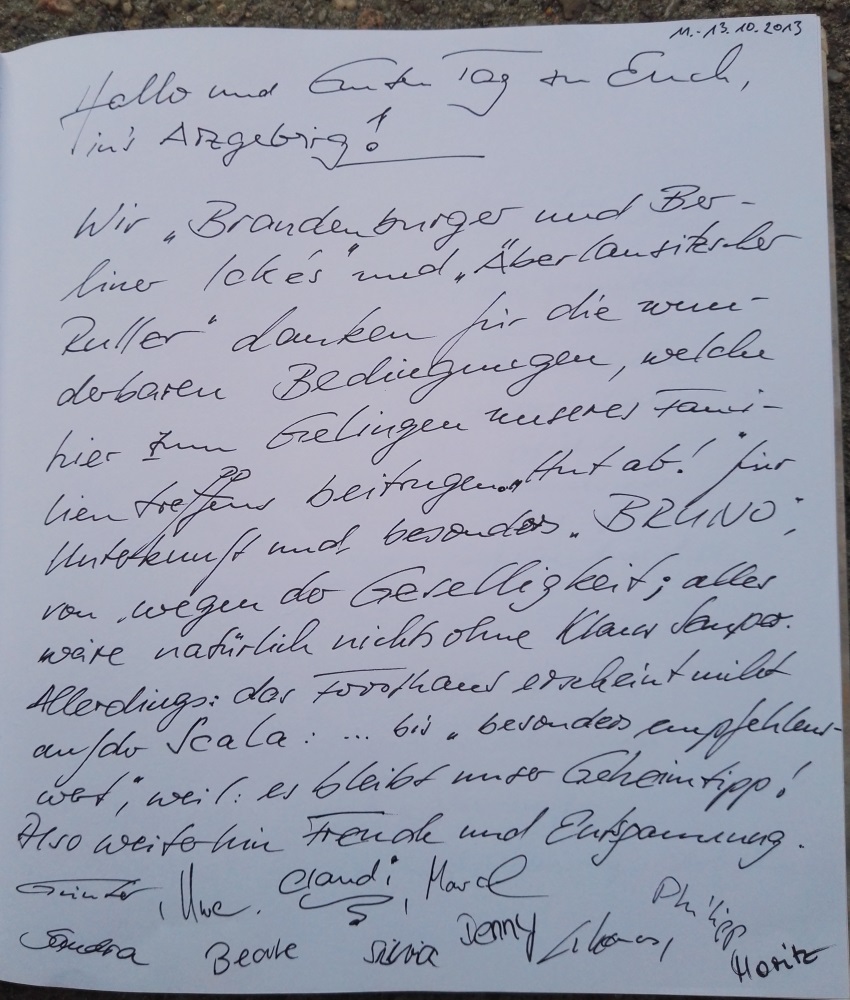 11.-13.10.2013
Hallo und Guten Tag zu Euch,
in's Arzgebirg!
Wir „Brandenburger und Ber-
liner Ickés" und „Äberlausitzscher
Ruller" danken für die wun-
derbaren Bedingungen, welche
hier zum Gelingen unseres Fami-
lientreffens beitrugen. „Hut ab!" für
Unterkunft und besonders „BRUNO",
von wegen der Geselligkeit; alles
wäre natürlich nichts ohne Klaus
Allerdings: das Forsthaus erscheint nicht
auf der Scala: ... bis „besonders empfehlens-
wert", weil: es bleibt unser Geheimtipp!
Also weiterhin Freude und Entspannung.
Günter, Uwe. Claudi, Marcel
Sandra Beate Silvia Denny Philipp
Moritz